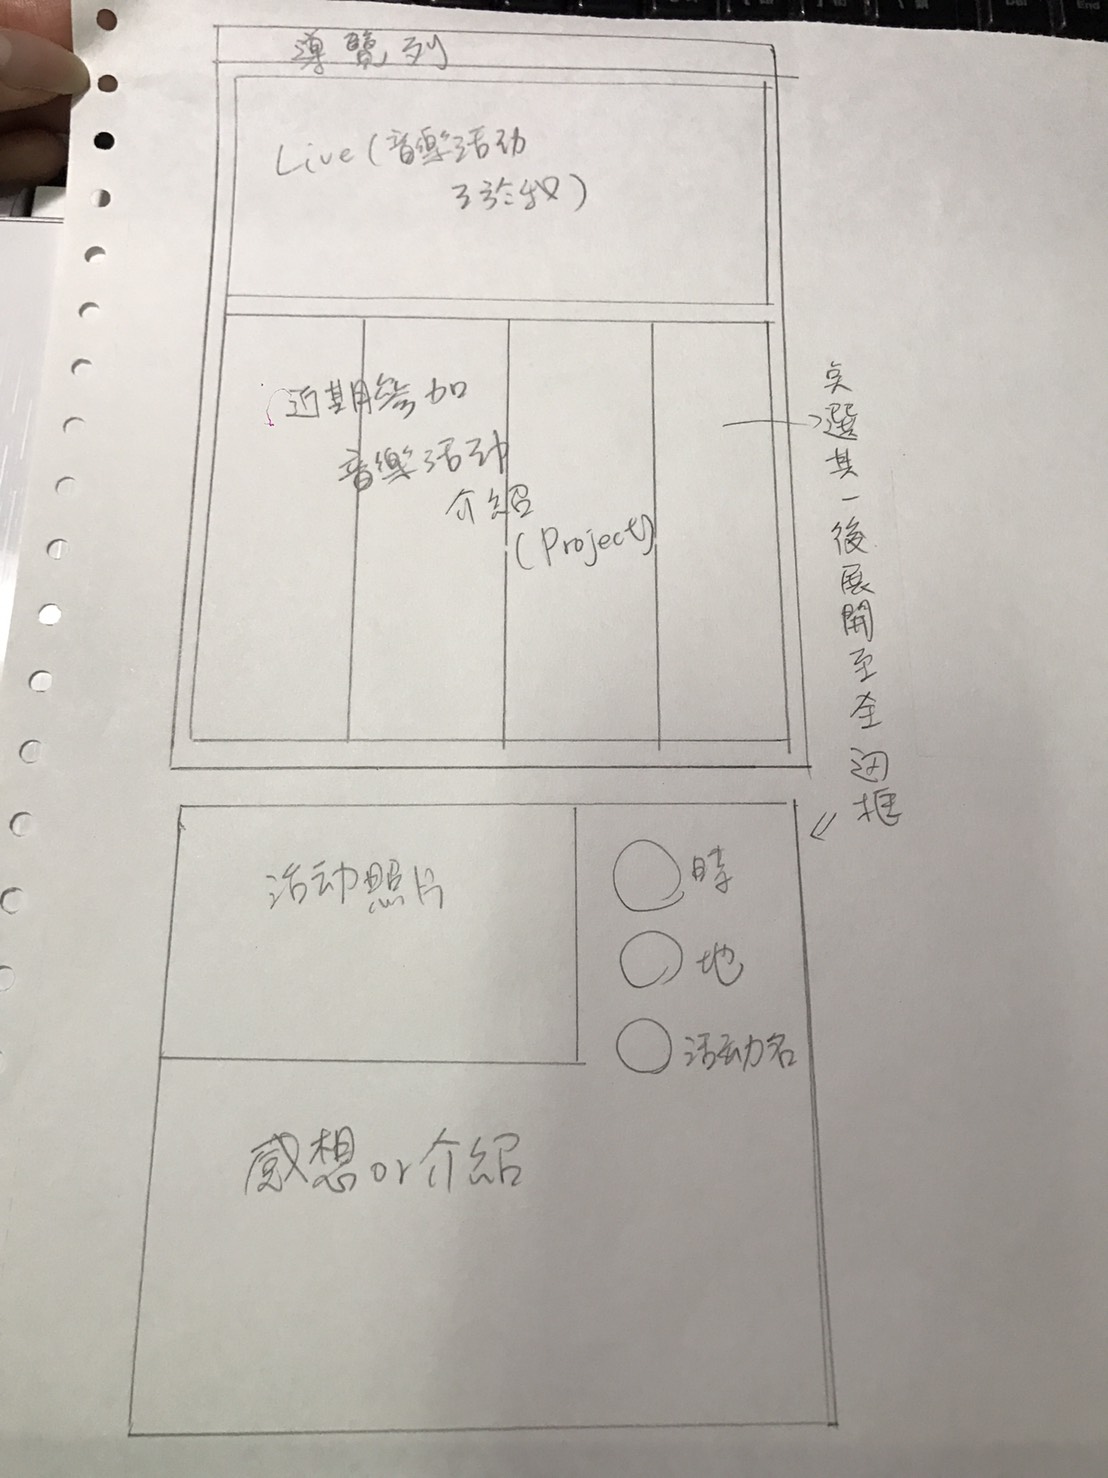 導覽列
Live(音樂活动
近期參加
音樂活动
介紹
(Project)
選其一後展開至全边框
活动照片
時
地
活动名
感想or介紹